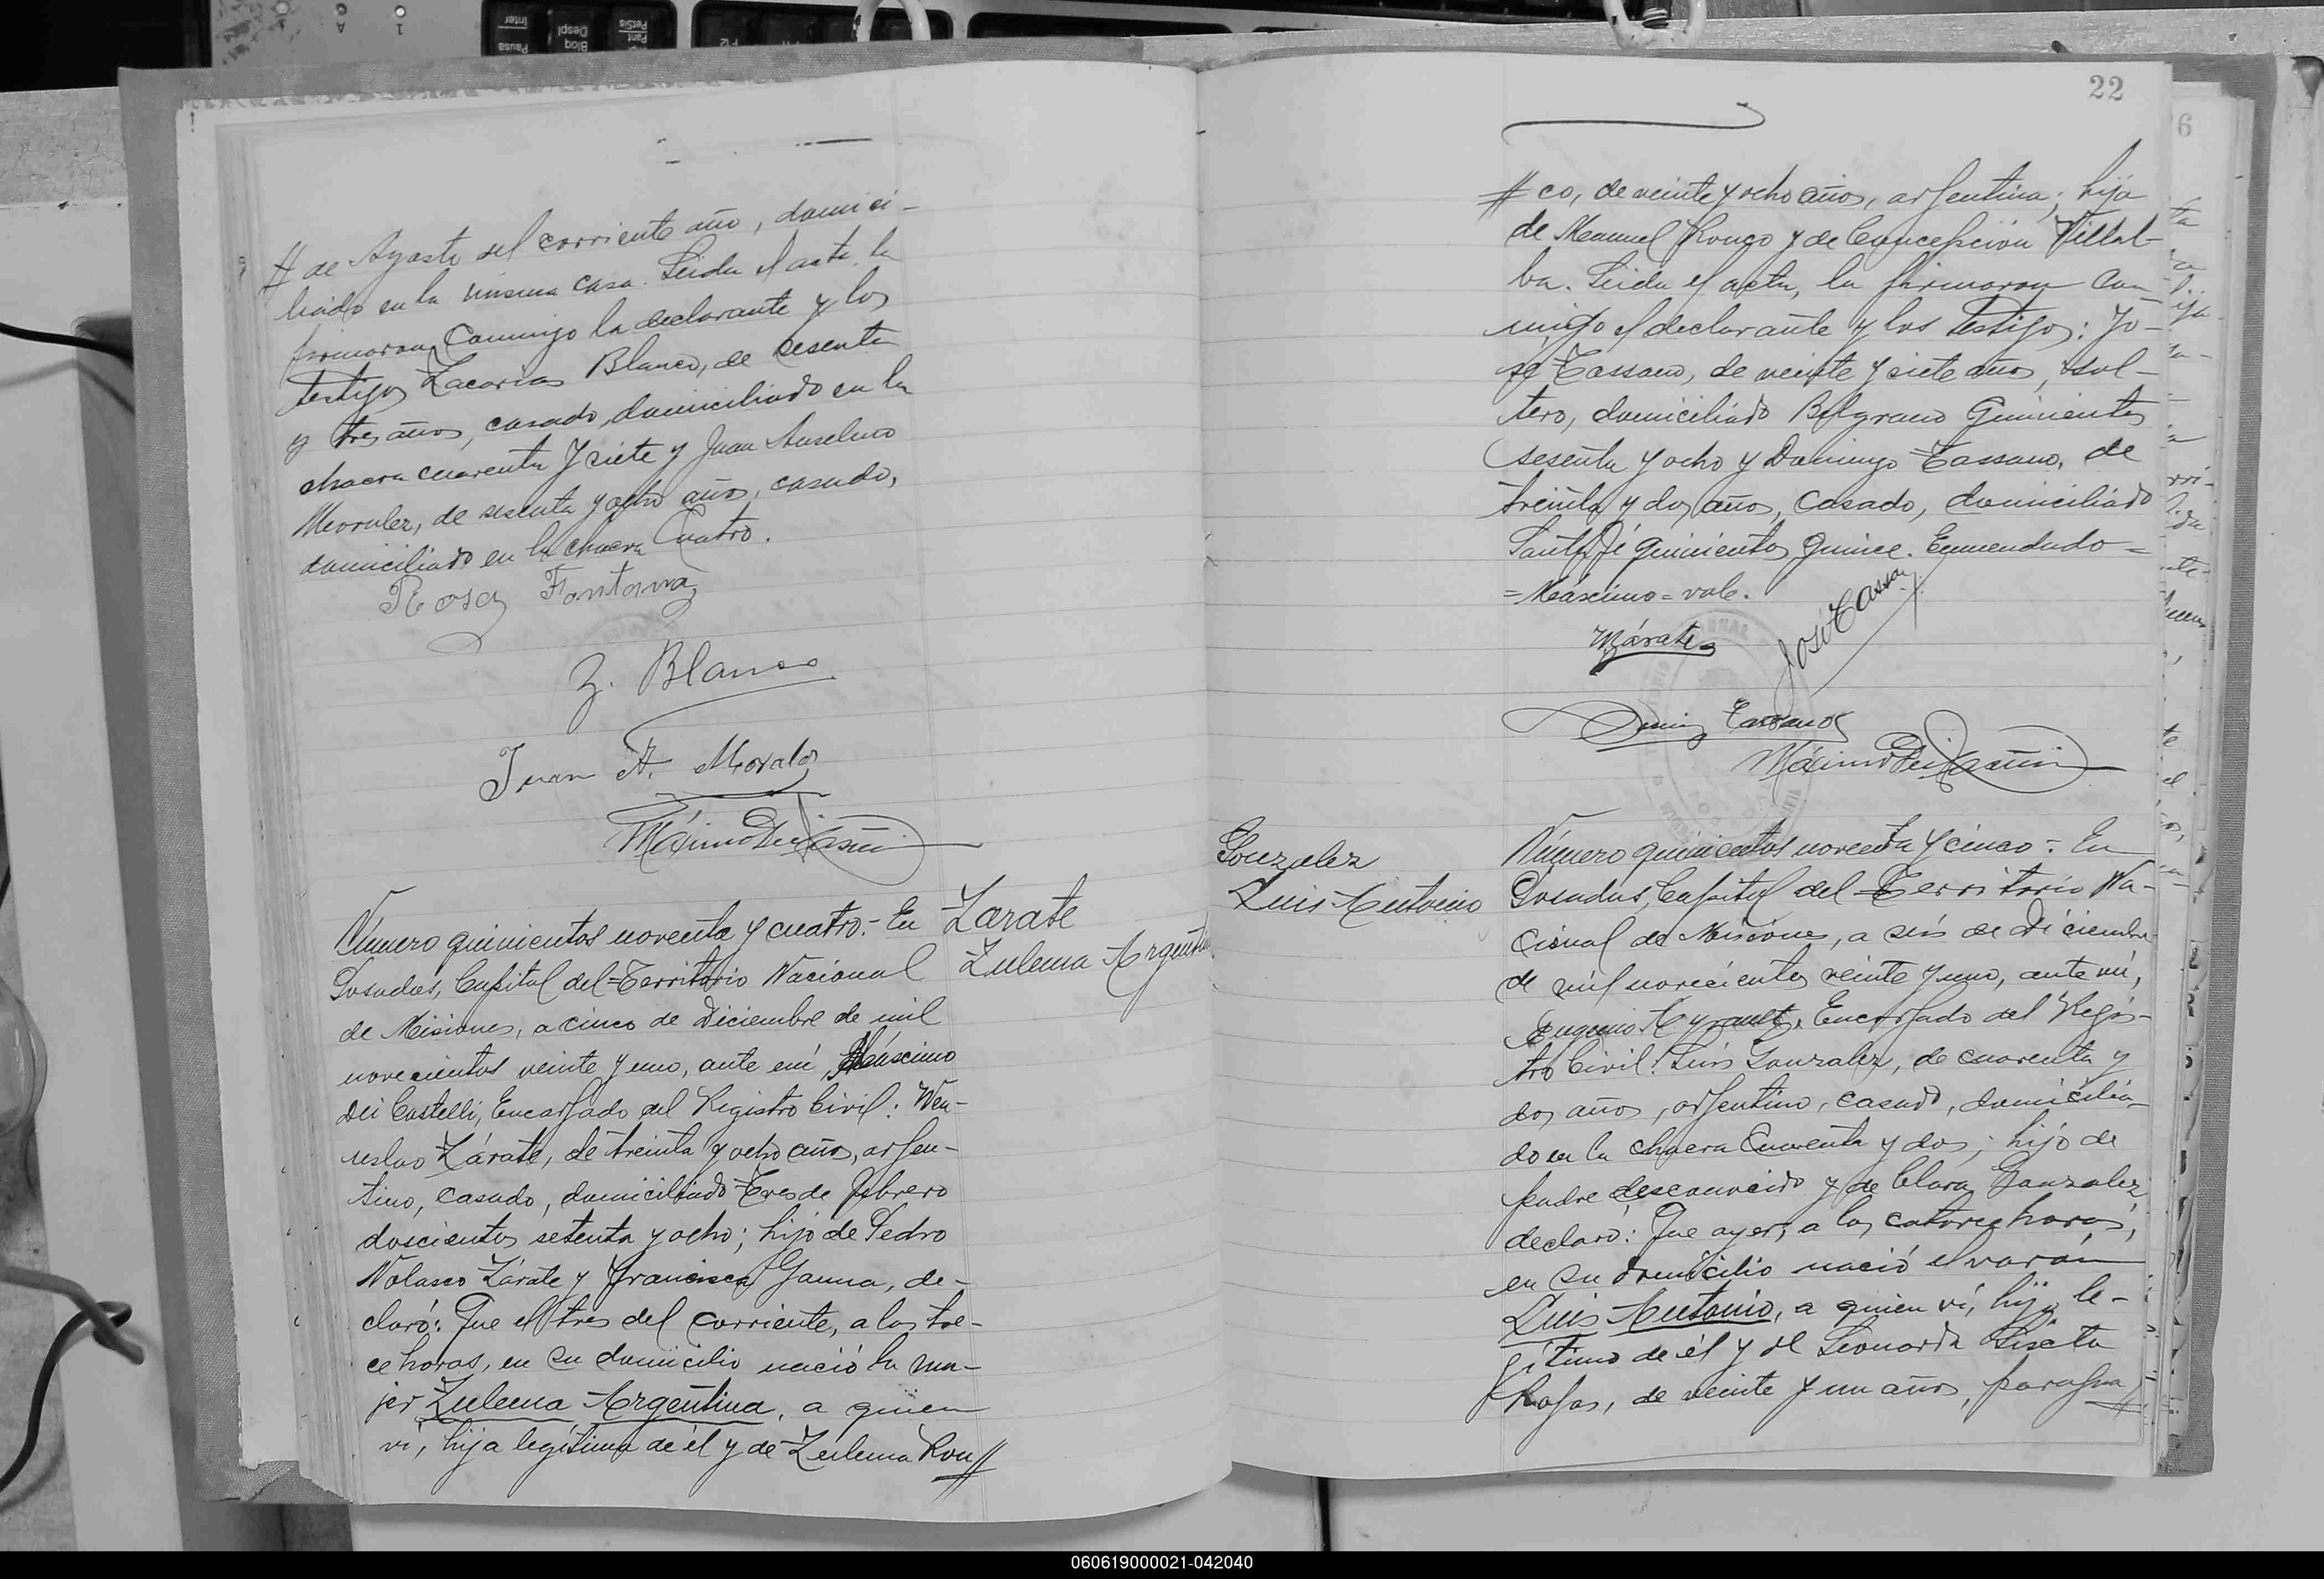 // de Agosto del corriente año, domici-
liado en la misma casa. Leida el acta, la
firmaron conmigo la declarante y los
testigos Zacarias Blanco, de sesenta
y tres años, casado, domiciliado en la
chacra cuarenta y siete y Juan Anselmo
Morales, de sesenta y ocho años, casado,
domiciliado en la chacra Cuatro.
Rosa Fontana
Z. Blanco
Juan A. Morales
Máximo Dei Castelli
Número quinientos noventa y cuatro.- En
Posadas, Capital del Territorio Nacional
de Misiones, a cinco de Diciembre de mil
novecientos veinte y uno, ante mí, Máscimo
Dei Castelli, Encargado del Registro Civil: Wen-
ceslao Zárate, de treinta y ocho años, argen-
tino, casado, domiciliado Tres de febrero
doscientos setenta y ocho; hijo de Pedro
Nolasco Zárate y Francisca Gauna, de-
claró: Que el tres del corriente, a las tre-
ce horas, en su domicilio nació la mu-
jer Zulema Argentina, a quien
ví, hija legítima de él y de Zulema Ron//
Zarate
Zulema Argentina
22
// co, de veinte y ocho años, argentina; hija
de Manuel Ronco y de Concepción Villal-
ba. Leida el acta, la firmaron con-
migo el declarante y los testigos: Jo-
sé Tassano, de veinte y siete años, sol-
tero, domiciliado Belgrano Quinientos
sesenta y ocho y Domingo Tassano, de
treinta y dos años, casado, domiciliado
Santa Fé quinientos quince. Enmendado=
=Máscimo=vale.
WZárate
José Tassano
Domingo Tassano
Máximo Dei Castelli
Gonzalez
Luis Antonio
Número quinientos noventa y cinco.- En
Posadas, Capital del Territorio Na-
cional de Misiones, a seis de Diciembre
de mil novecientos veinte y uno, ante mí,
Eugenio Ayrault, Encargado del Regis-
tro Civil: Luis Gonzalez, de cuarenta y
dos años, argentino, casado, domicilia-
do en la chacra Cuarenta y dos; hijo de
padre desconocido y de Clara Gonzalez
declaró: Que ayer, a las catorce horas,
en su domicilio nació el varón
Luis Antonio, a quien ví, hijo le-
gítimo de él y de Leonarda Liseta
Rojas, de veinte y un años, paragua//
6
060619000021-042040